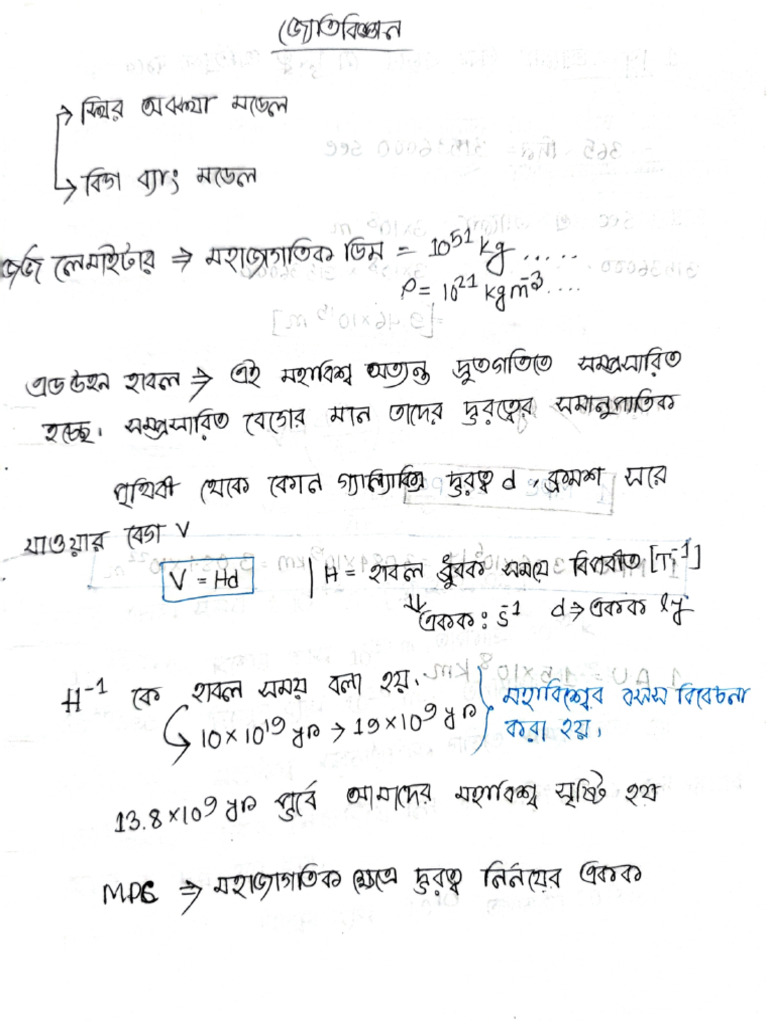 জ্যোতির্বিজ্ঞান
→ স্থির অবস্থা মডেল
→ বিগ ব্যাং মডেল
জর্জ লেমাইটার ⇒ মহাজাগতিক ডিম = 10⁵¹ kg .....
ρ = 10²¹ kgm⁻³....
এডউইন হাবল ⇒ এই মহাবিশ্ব অত্যন্ত দ্রুতগতিতে সম্প্রসারিত
হচ্ছে। সম্প্রসারিত বেগের মান তাদের দুরত্বের সমানুপাতিক
পৃথিবী থেকে কোন গ্যালাক্সির দুরত্ব d , ক্রমশ সরে
যাওয়ার বেগ V
V = Hd | H = হাবল ধ্রুবক সময়ে বিপরীত [T⁻¹]
একক : s⁻¹ d ⇒ একক ly
H⁻¹ কে হাবল সময় বলা হয়।
10×10¹⁹ yr → 19×10⁹ yr
মহাবিশ্বের বয়স বিবেচনা
করা হয়।
13.8×10⁹ yr পূর্বে আমাদের মহাবিশ্ব সৃষ্টি হয়
MPC ⇒ মহাজাগতিক ক্ষেত্রে দুরত্ব নির্নয়ের একক